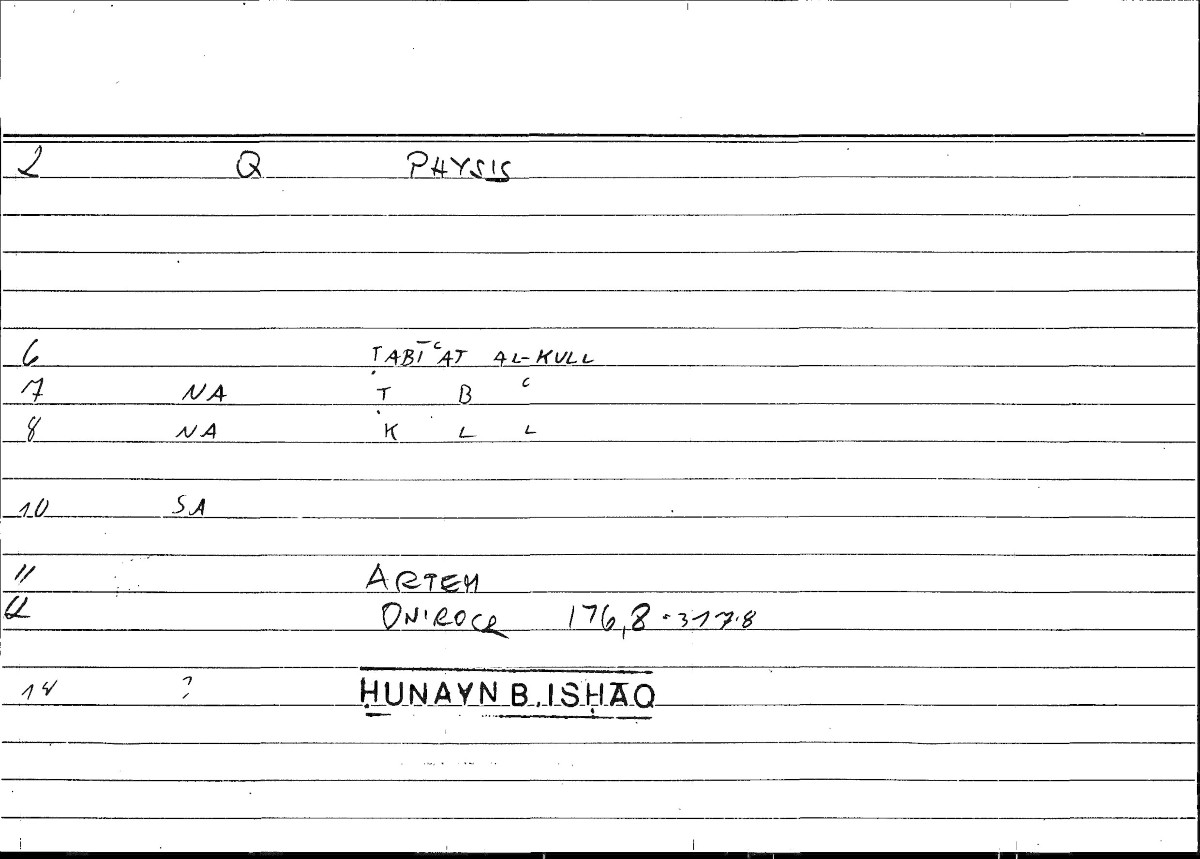 2 Q PHYSIS
6 ṬABĪʿAT AL-KULL
7 NA Ṭ B ʿ
8 NA K L L
10 SA
11 ARTEM
12 ONIROCR 176,8 = 317.8
14 ? ḤUNAYN B. ISḤĀQ